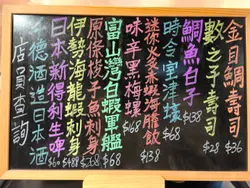 金目鯛壽司 $36
數之子壽司 $28
鯛魚白子 $138
時令室津蠔 $68
迷你火炙蝦海膽飯 $138
味辛黑梅螺 $68
富山灣白蝦軍艦 $68
原條枝子魚刺身 $268
伊勢海龍蝦刺身 $488
日本新得利生啤 $60
冬德酒造日本酒
店員查詢